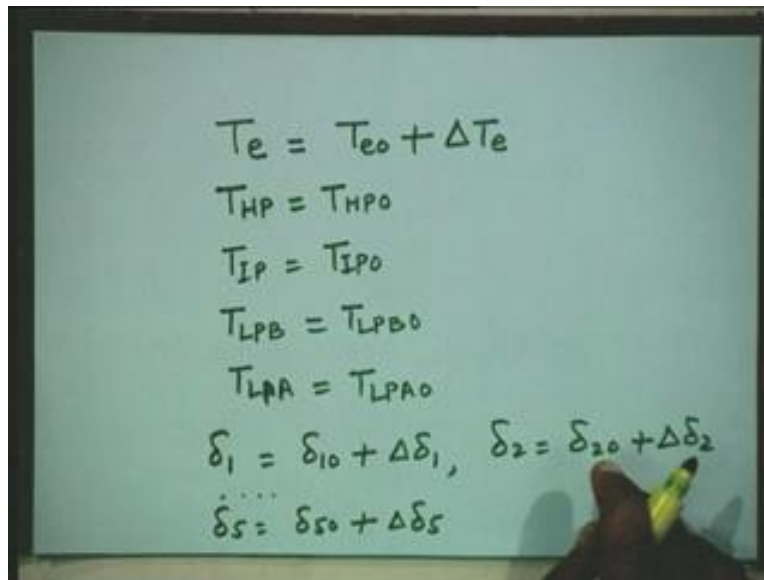 Te = Teo + ΔTe
THP = THPO
TIP = TIPO
TLPB = TLPBO
TLPA = TLPAO
δ1 = δ10 + Δδ1, δ2 = δ20 + Δδ2
.....
δ5 = δ50 + Δδ5